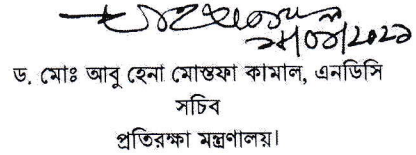 ড. মোঃ আবু হেনা মোস্তফা কামাল, এনডিসি
সচিব
প্রতিরক্ষা মন্ত্রণালয়।